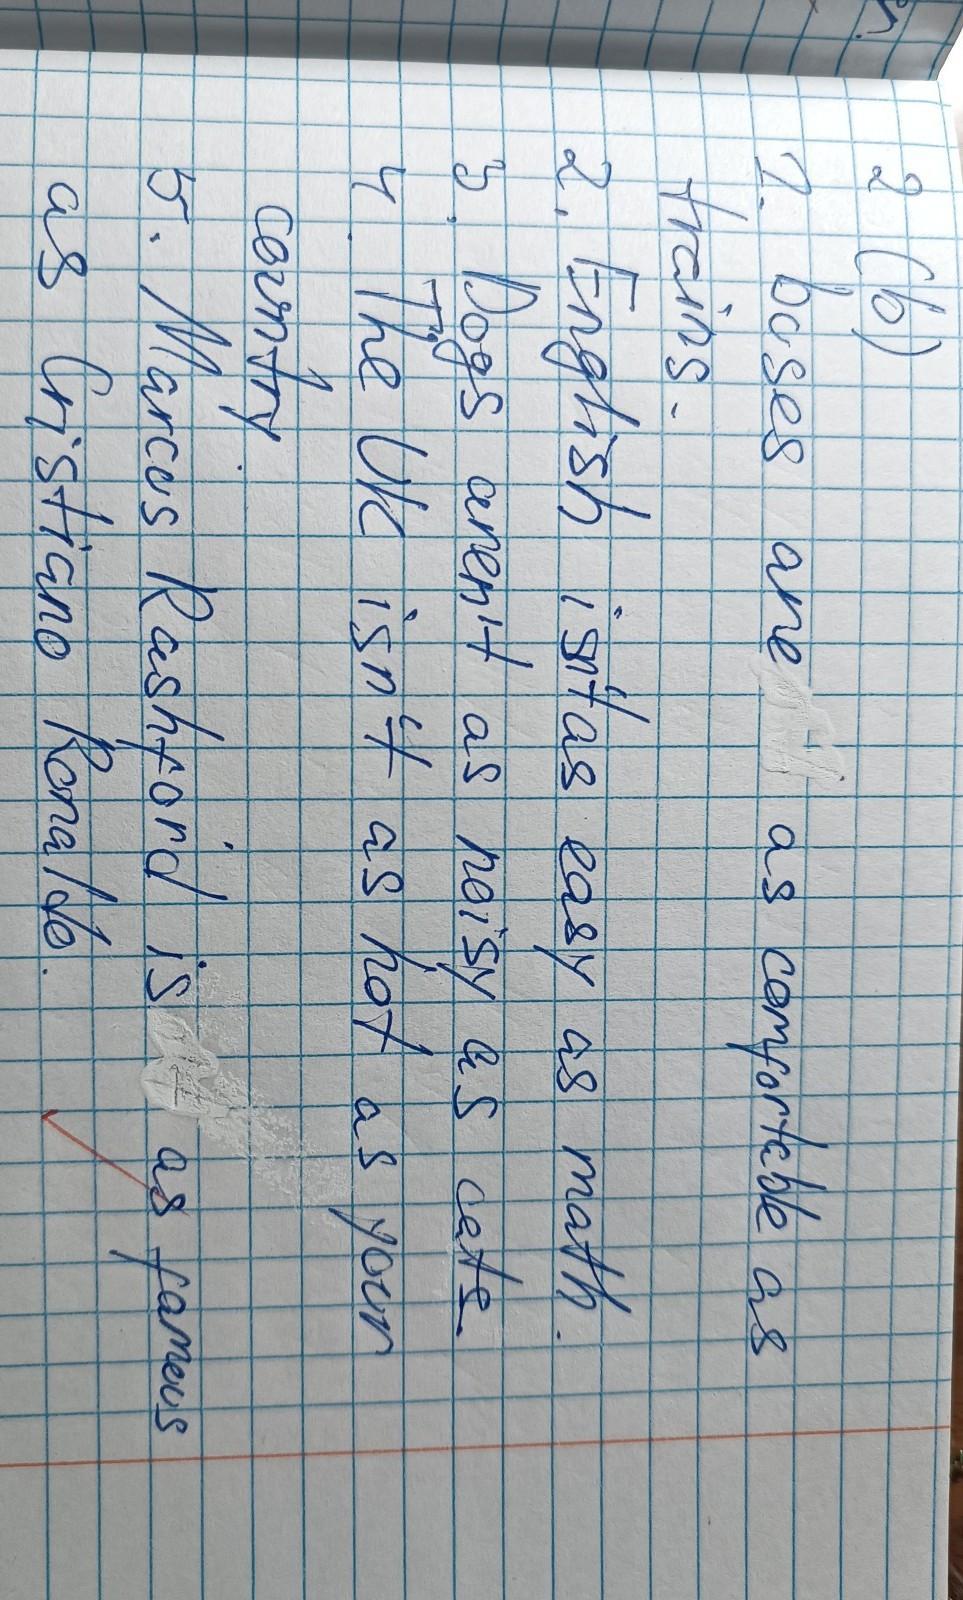 2 (b)
1. buses are as comfortable as
trains.
2. English isn't as easy as math.
3. Dogs aren't as noisy as cats.
4. The UK isn't as hot as your
country.
5. Marcus Rashford is as famous
as Cristiano Ronaldo.